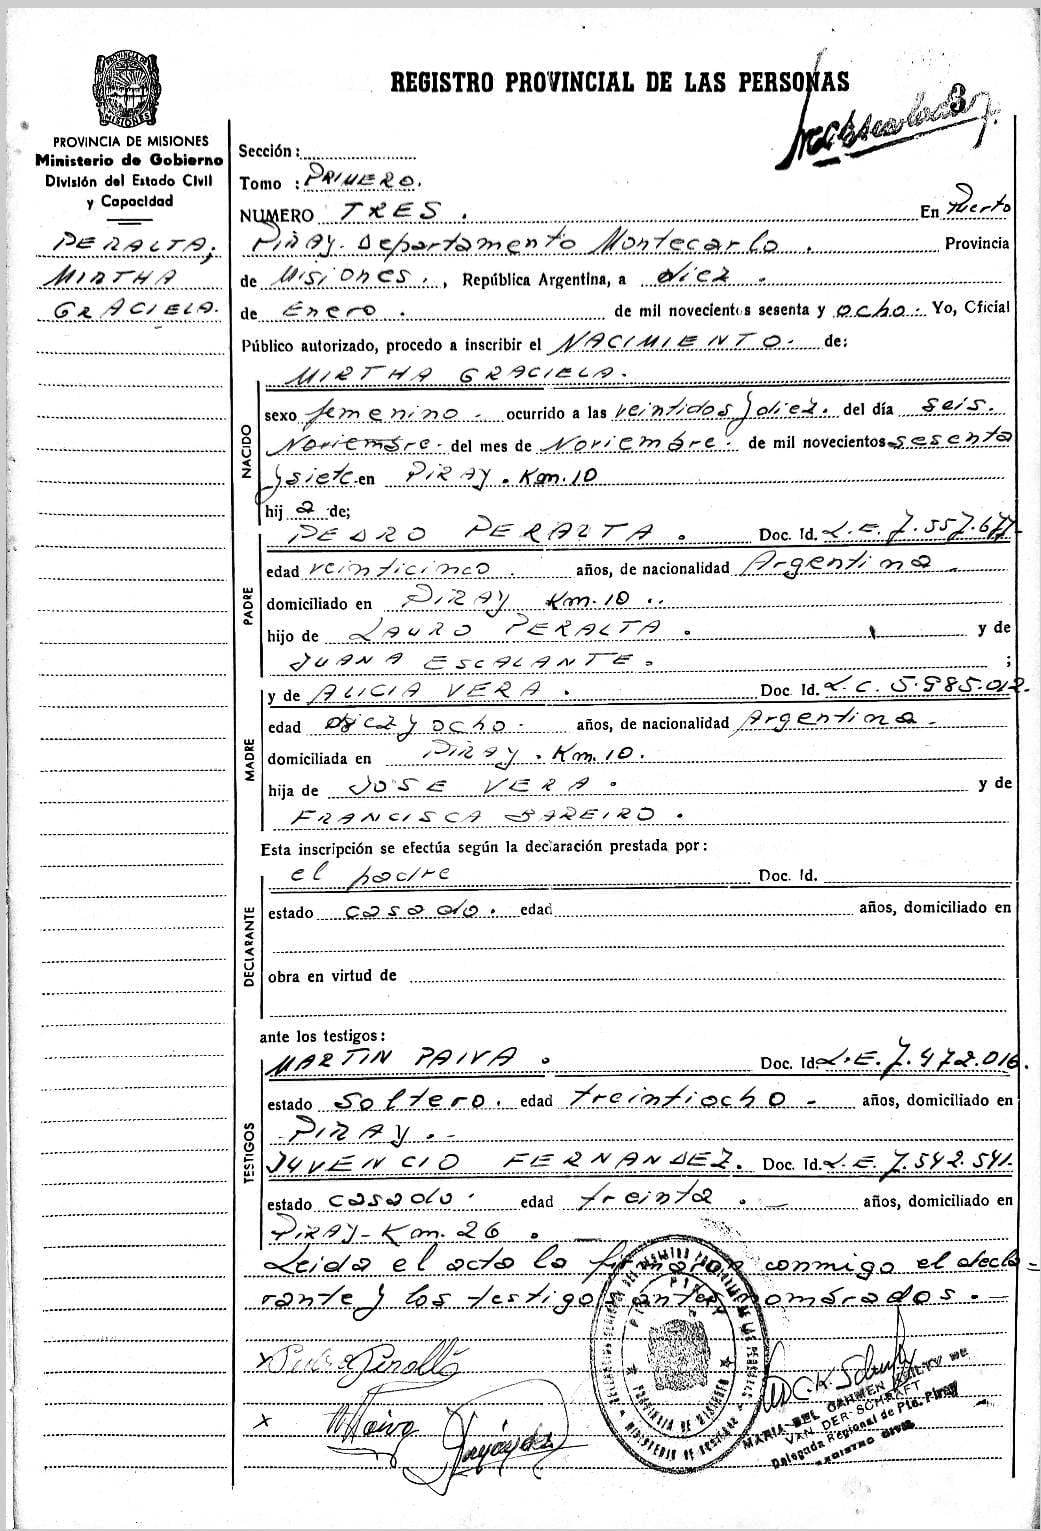 REGISTRO PROVINCIAL DE LAS PERSONAS
3
PROVINCIA DE MISIONES
Ministerio de Gobierno
División del Estado Civil
y Capacidad
PERALTA,
MIRTHA
GRACIELA.
Sección:
Tomo : PRIMERO.
NUMERO TRES. En Puerto
PIRAY. Departamento Montecarlo. Provincia
de Misiones., República Argentina, a diez.
de Enero. de mil novecientos sesenta y ocho. Yo, Oficial
Público autorizado, procedo a inscribir el NACIMIENTO. de:
MIRTHA GRACIELA.
NACIDO
sexo femenino. ocurrido a las veintidos y diez. del día seis.
Noviembre. del mes de Noviembre. de mil novecientos sesenta
y siete. en PIRAY. Km. 10
hij a de;
PADRE
PEDRO PERALTA. Doc. Id. L.E. 7.557.677
edad veinticinco. años, de nacionalidad Argentina.
domiciliado en PIRAY Km. 10..
hijo de LAURO PERALTA. y de
JUANA ESCALANTE. ;
MADRE
y de ALICIA VERA. Doc. Id. L.C. 5.985.012.
edad diez y ocho. años, de nacionalidad Argentina.
domiciliada en PIRAY. Km. 10.
hija de JOSE VERA. y de
FRANCISCA BAREIRO.
Esta inscripción se efectúa según la declaración prestada por:
DECLARANTE
el padre Doc. Id.
estado casado. edad años, domiciliado en
obra en virtud de
ante los testigos:
TESTIGOS
MARTIN PAIVA. Doc. Id. L.E. 7.472.016.
estado soltero. edad treintiocho - años, domiciliado en
PIRAY. -
JUVENCIO FERNANDEZ. Doc. Id. L.E. 7.542.541.
estado casado. edad treinta. - años, domiciliado en
PIRAY - Km. 26.
Leida el acta la firmaron conmigo el decla=
rante y los testigos antes nombrados. -
PIRAY
PROVINCIA DE MISIONES
MARIA DEL CARMEN DE
VAN DER SCHRAFT
Delegada Regional de Pto. Piray
REGISTRO CIVIL